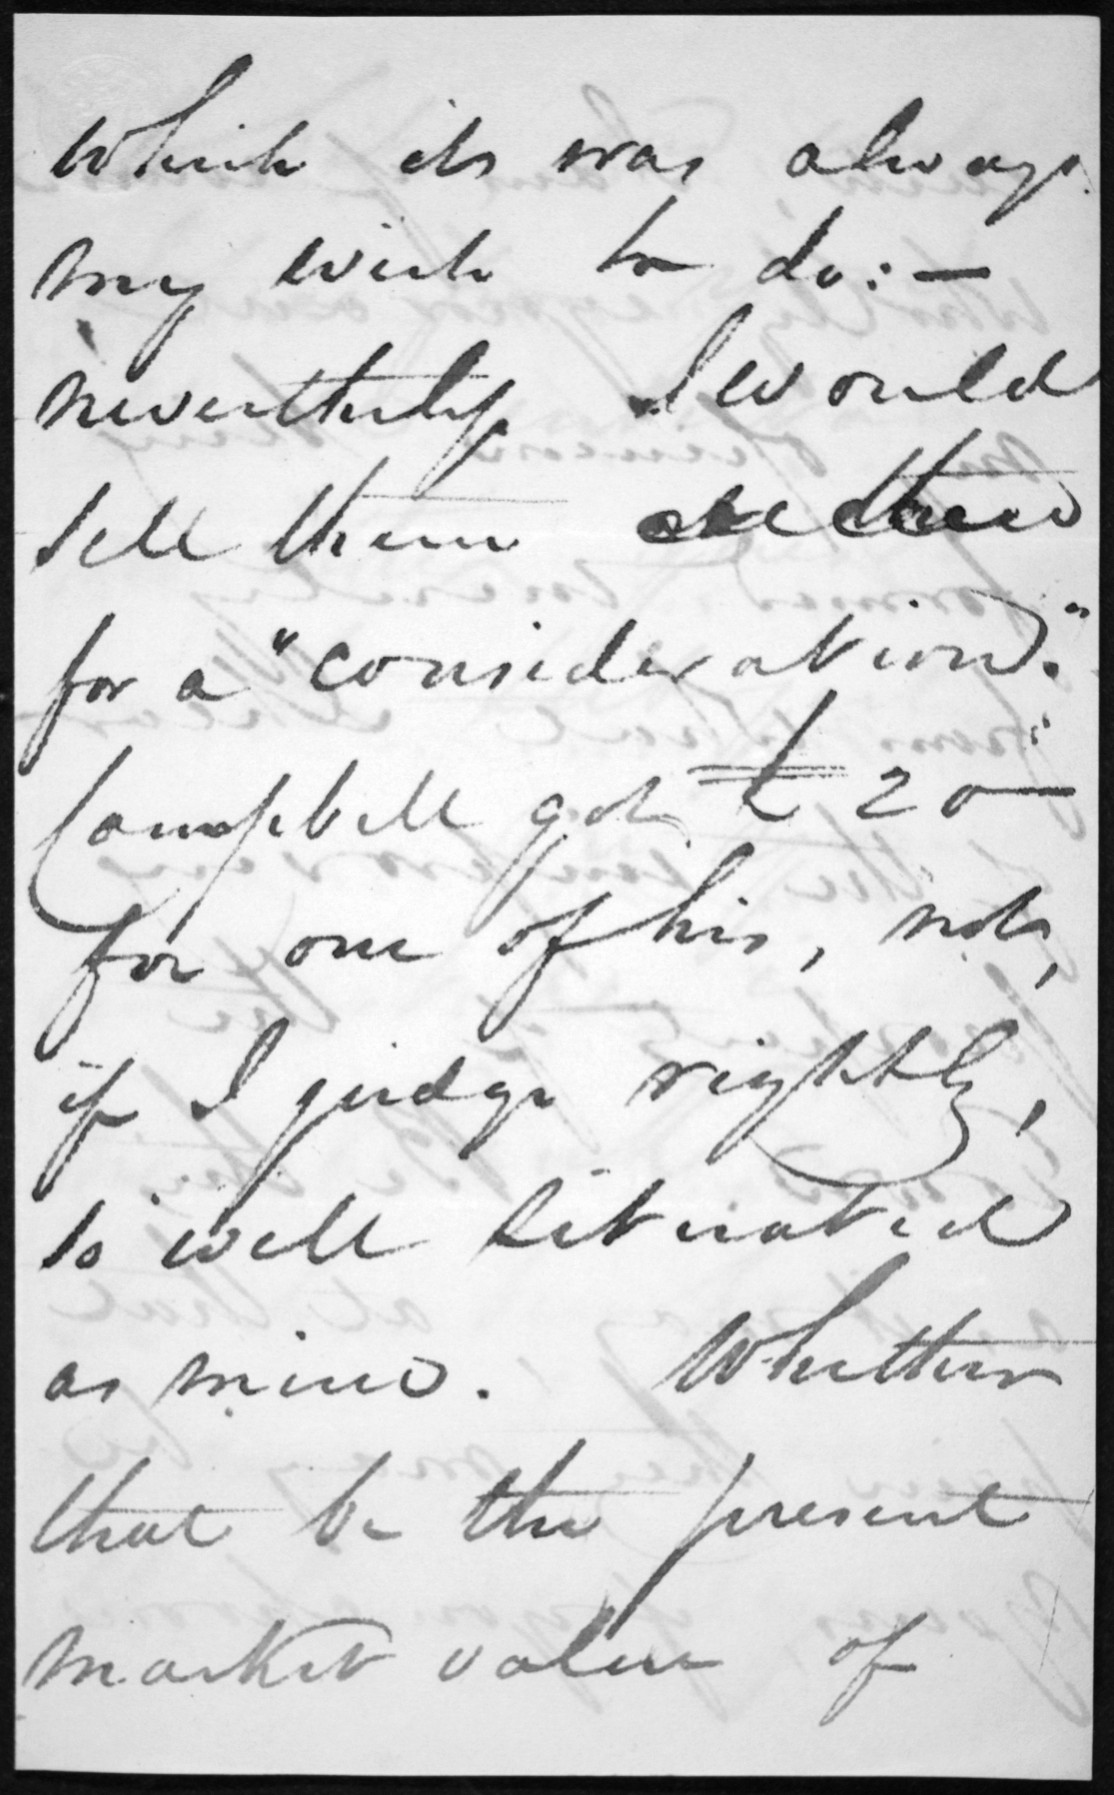 which it was always
my wish to do:—
nevertheless I would
sell them all three
for a "consideration."
Campbell got £20—
for one of his, not,
if I judge rightly,
so well situated
as mine. Whether
that be the present
market value of